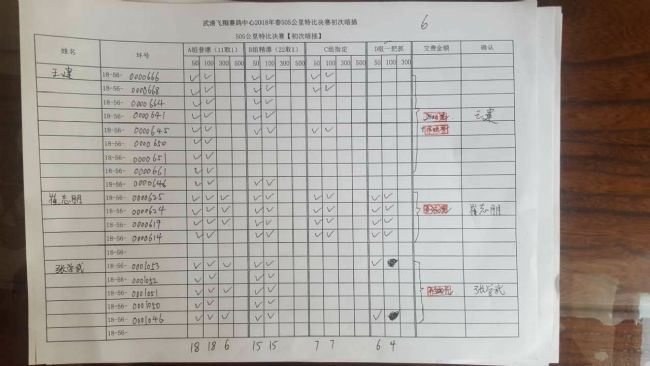 6
武清飞翔赛鸽中心2018年春505公里特比决赛初次暗插
505公里特比决赛【初次暗插】
姓名 环号 A组普漂（11取1） B组精漂（22取1） C组指定 D组一把抓 交费金额 确认
50 100 300 500 50 100 300 500 50 100 300 500 50 100 300
王建 18-56- 0000666 ✓ ✓ ✓ ✓ ✓ ✓
18-56- 0000668 ✓ ✓ ✓ ✓ ✓ ✓
18-56- 0000664 ✓ ✓ ✓ ✓
18-56- 0000641 ✓ ✓ ✓ ✓ 王建
18-56- 0000645 ✓ ✓ ✓ ✓ ✓ ✓
18-56- 0000650 ✓ ✓
18-56- 0000651 ✓ ✓
18-56- 0000661 ✓ ✓
18-56- 0000646 ✓ ✓ ✓ ✓
崔志朋 18-56- 0000625 ✓ ✓ ✓ ✓ ✓ ✓ ✓ ✓ ✓
18-56- 0000624 ✓ ✓ ✓ ✓ ✓ ✓ ✓ ✓ ✓ 崔志朋
18-56- 0000619 ✓ ✓ ✓ ✓ ✓ ✓ ✓ ✓ ✓
18-56- 0000614 ✓ ✓ ✓ ✓ ✓ ✓ ✓ ✓
18-56-
张学武 18-56- 0001053 ✓ ✓ ✓ ✓ ✓ ✓
18-56- 0001052 ✓ ✓ ✓ ✓
18-56- 0001051 ✓ ✓ ✓ ✓ ✓ 张学武
18-56- 0001050 ✓ ✓ ✓ ✓
18-56- 0001046 ✓ ✓ ✓ ✓ ✓ ✓
18-56-
18 18 6 15 15 7 7 6 4